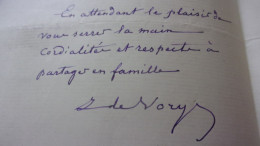 En attendant le plaisir de
vous serrer la main
cordialités et respects à
partager en famille
L de Vorys